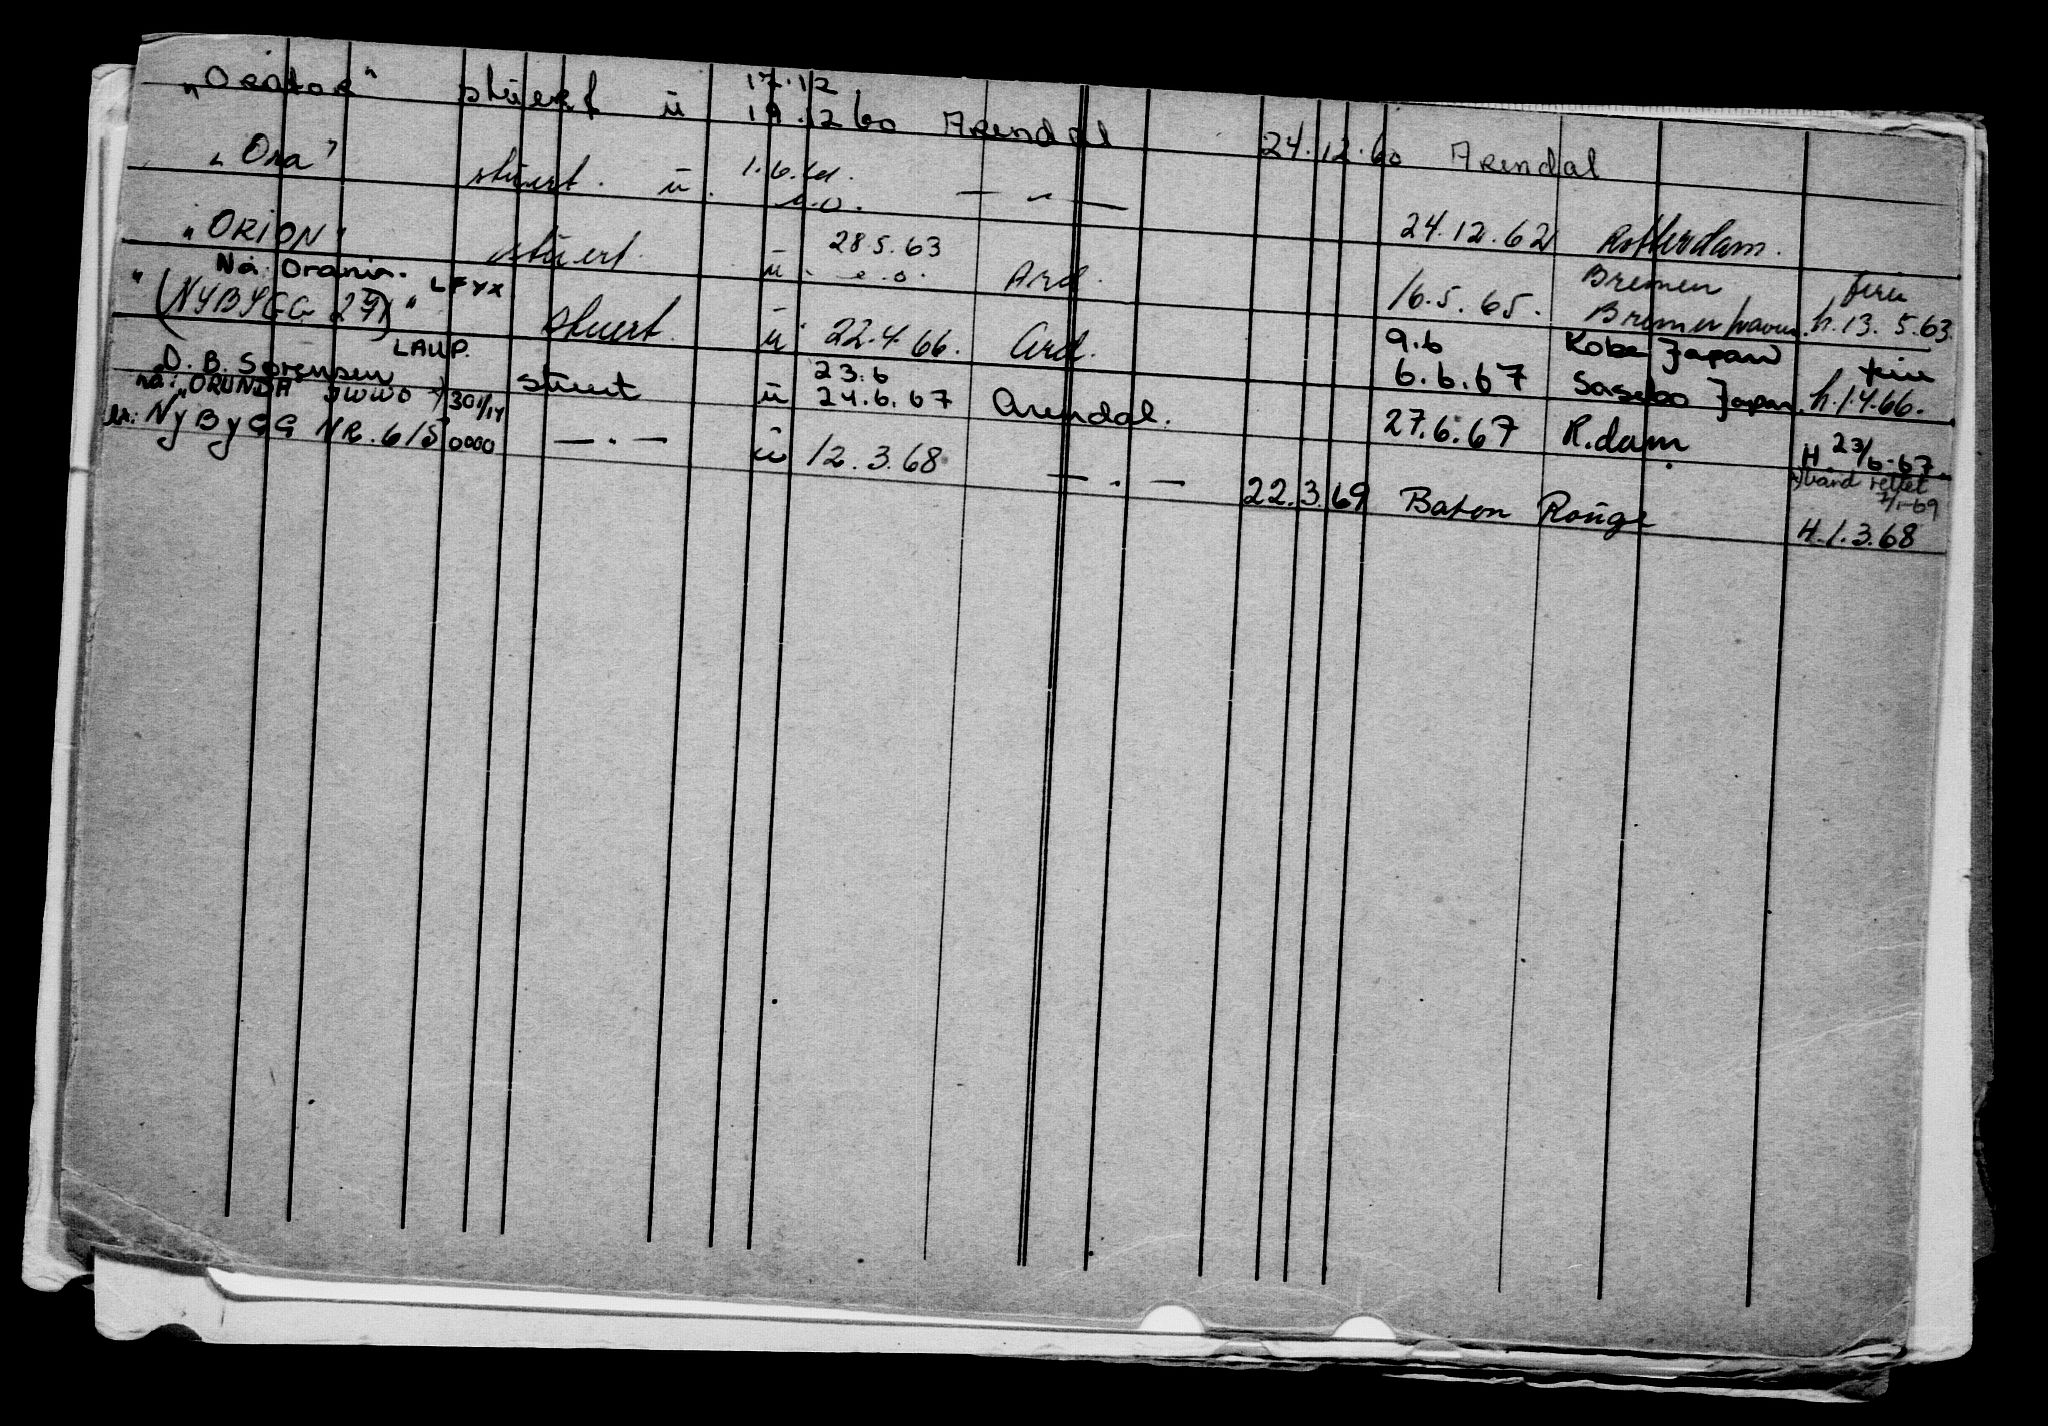 17.12
„Orator" stuert u 19.12 60 Arendal 24.12.60 Arendal
„Ora" stuert. u. 1.6.61. — „ —
e.o. 24.12.62 Rotterdam.
„ORION" stuert. u. 28.5.63 Ard. 16.5.65. Bremen ferie
e.o. Bremerhaven. h.13.5.63
Na: Orania. LFYX 9.6 Kobe Japan ferie
„(NYBYGG 271)" stuert. u 22.4.66. Ard. 6.6.67 Sasebo Japan. h.1.4.66.
D. B. Sørensen LAUP. stuert 23.6
u 24.6.67 Arendal. 27.6.67 R.dam H. 23/6-67.
na: „ORUNDA" JWWO 301/14 rettet
/1-69
ex: NyByGG NR. 615 0000 — . — u 12.3.68 — . — 22.3.69 Baton Rouge H.1.3.68